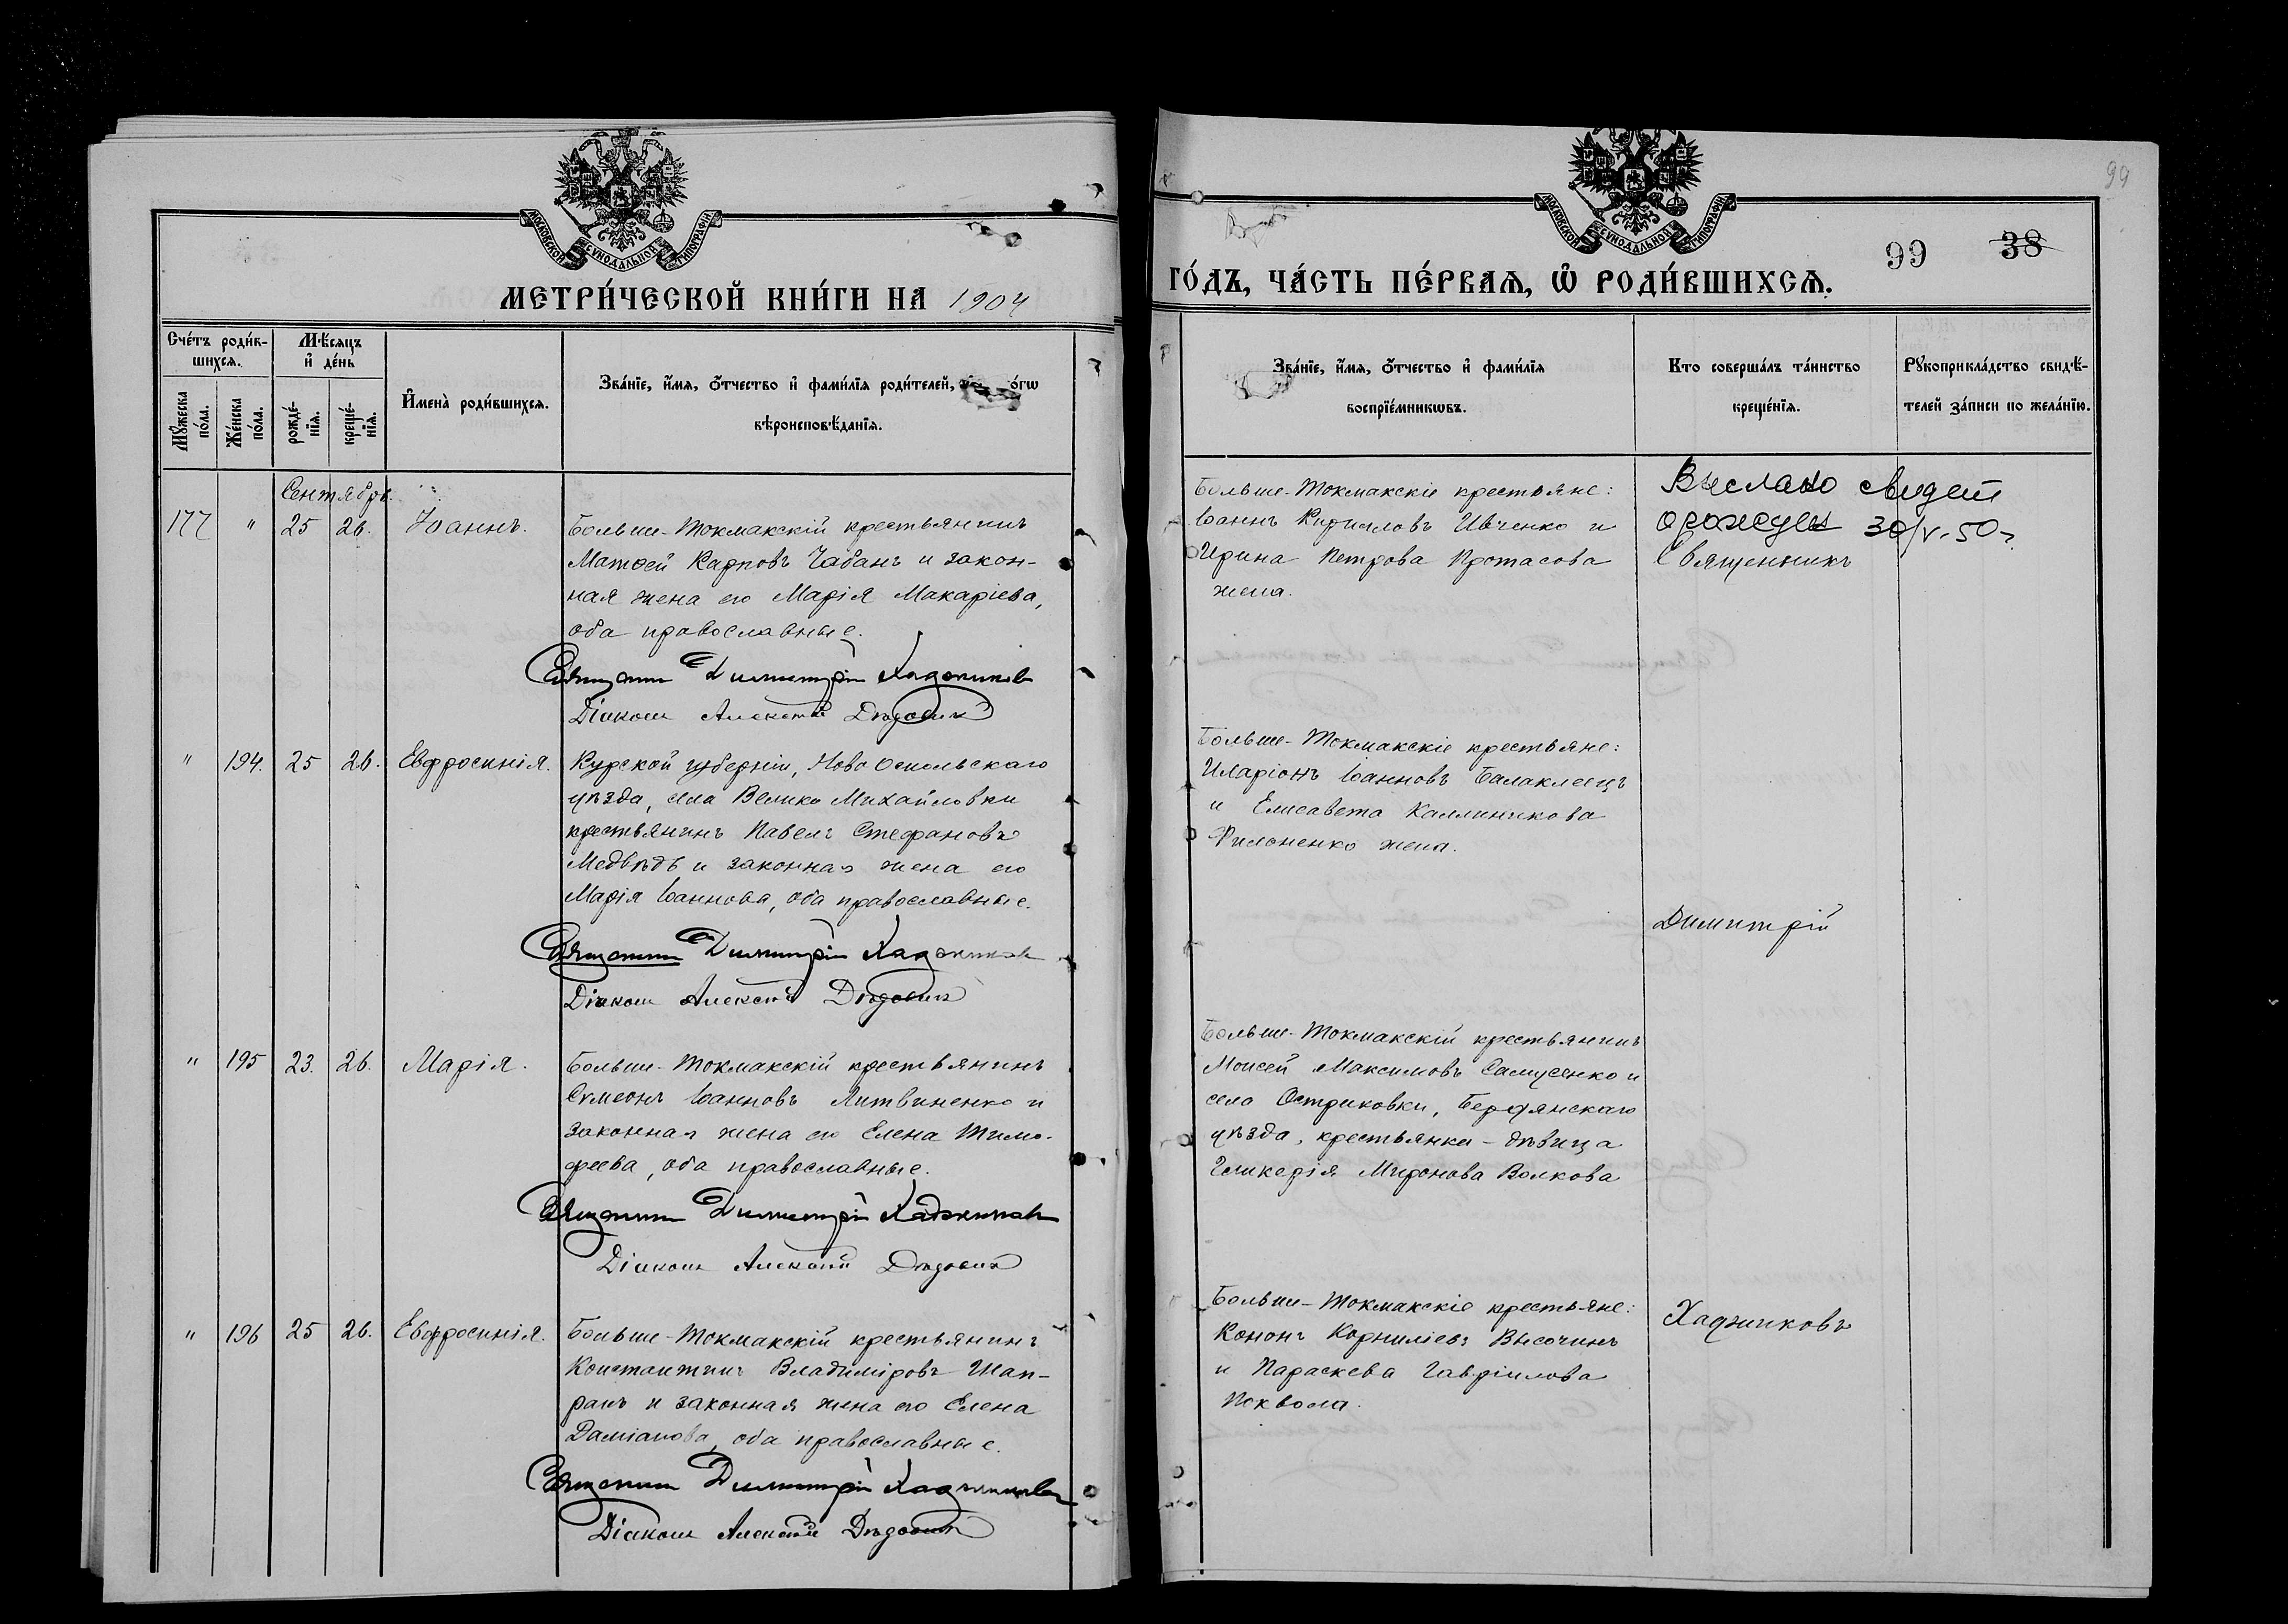 МОСКОВСКОЙ СУНОДАЛЬНОЙ ТИПОГРАФІИ
МЕТРИ́ЧЕСКОЙ КНИ́ГИ НА 1904
Сче́тъ роди́вшихсѧ.
Мѣ́сѧцъ и҆ де́нь
Мꙋ́жеска по́ла.
Же́нска по́ла.
рожде́нїѧ.
креще́нїѧ.
И҆мена̀ роди́вшихсѧ.
Зва́нїе, и҆́мѧ, ѻ҆́тчество и҆ фами́лїѧ роди́телей,
вѣроисповѣ́данїѧ.
Сентябрь.
177 " 25 26. Іоаннъ.
Больше-Токмакскій крестьянинъ
Матѳей Карповъ Чабанъ и закон-
ная жена его Марія Макаріева,
оба православные.
Священникъ Димитрій Хаджиновъ
Діаконъ Алексій
" 194. 25 26. Евфросинія.
Курской губерніи, Ново Оскольскаго
уѣзда, села Велико Михайловки
крестьянинъ Павелъ Стефановъ
Медвѣдь и законная жена его
Марія Іоаннова, оба православные.
Священникъ Димитрій Хаджиновъ
Діаконъ Алексій
" 195 23. 26. Марія.
Больше-Токмакскій крестьянинъ
Симеонъ Іоанновъ Литвиненко и
законная жена его Елена Тимо-
феева, оба православные.
Священникъ Димитрій Хаджиновъ
Діаконъ Алексій
" 196 25 26. Евфросинія.
Больше-Токмакскій крестьянинъ
Константинъ Владиміровъ Шап-
ранъ и законная жена его Елена
Даміанова, оба православные.
Священникъ Димитрій Хаджиновъ
Діаконъ Алексій
99
МОСКОВСКОЙ СУНОДАЛЬНОЙ ТИПОГРАФІИ
99 38
ГО́ДЪ, ЧА́СТЬ ПЕ́РВАѦ, Ѽ РОДИ́ВШИХСѦ.
Зва́нїе, и҆́мѧ, ѻ҆́тчество и҆ фами́лїѧ
воспрїе́мникѡвъ.
Кто соверша́лъ та́инство
креще́нїѧ.
Рꙋкоприкла́дство свидѣ́-
телей за́писи по жела́нїю.
Больше-Токмакскіе крестьяне:
Іоаннъ Кирилловъ Ивченко и
Ирина Петрова Протасова
жена.
Выслано свидет
о рожден 30/V-50г.
Священникъ
Больше-Токмакскіе крестьяне:
Иларіонъ Іоанновъ Балаклеецъ
и Елисавета Каллиникова
Филоненко жена.
Димитрій
Больше-Токмакскій крестьянинъ
Моисей Максимовъ Самусенко и
села Остриковки, Бердянскаго
уѣзда, крестьянка - дѣвица
Гликерія Миронова Волкова
Больше-Токмакскіе крестьяне:
Кононъ Корниліевъ Высочинъ
и Параскева Гавріилова
Хаджиновъ